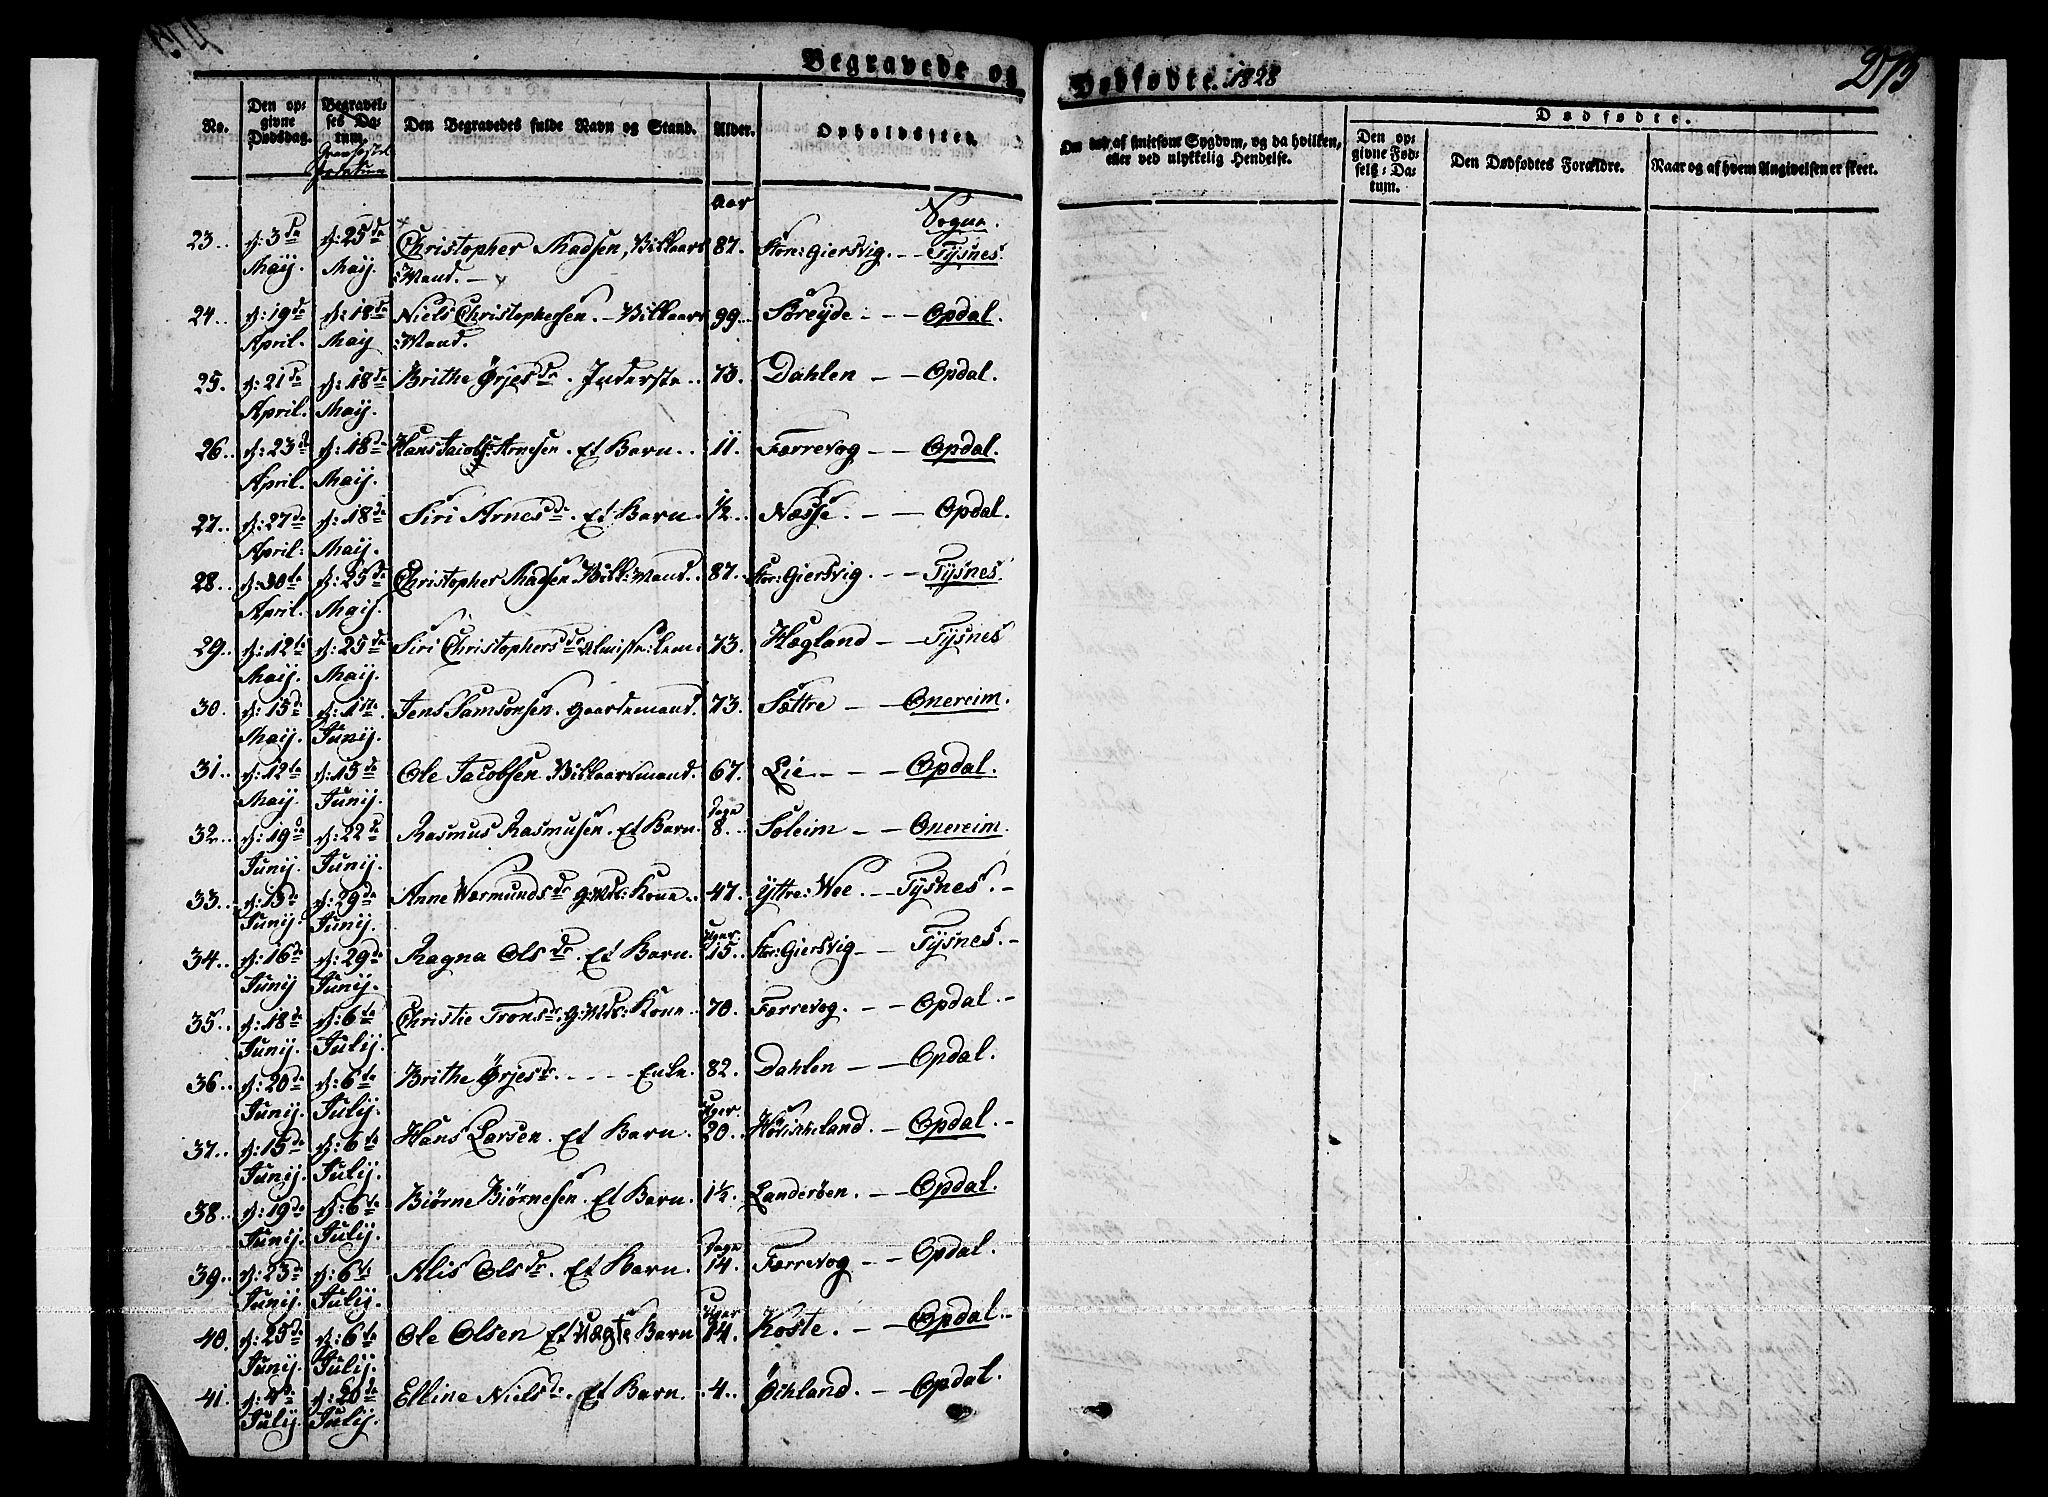 Begravede og Dødfødte. 1828
273
No.
Den opgivne Dødsdag.
Begravelses Datum.
Den Begravedes fulde Navn og Stand.
Alder.
Opholdssted.
Om død af smitsom Sygdom, og da hvilken, eller ved ulykkelig Hendelse.
Dødfødte.
Den opgivne Fødsels-Datum.
Den Dødfødtes Forældre.
Naar og af hvem Angivelsen er skeet.
Aar
Sogne.
23.. d: 3de d: 25de Christopher Madsen, Vilkaars 87. Store: Giersvig. — Tysnes.
Maij. Maij. :Mand. —
24.. d: 19de d: 18de Niels Christophersen. — Vilkaars 99. Søreyde — — Opdal.
April. Maij :Mand.
25. d: 21de d: 18de Brithe Ørjesdr. Inderste.. 73. Dahlen — — Opdal.
April. Maij.
26.. d: 23de d: 18de Hans Jacob Arnesen. Et Barn.. 11. Færrevog — — Opdal.
April. Maij.
27.. d: 27de d: 18de Siri Arnesdr. Et Barn. 1/2.. Næsse. — Opdal.
April. Maij.
28.. d: 30te d: 25de Christopher Madsen Vilk: Mand. 87.. Stor: Giersvig. — — Tysnes.
April. Maij.
29.. d: 12te d: 25de Siri Christophersdr Almisse:Lem: 73. Hegland — — Tysnes
Maij. Maij.
30. d: 15de d: 1ste Jens Samsonsen. Gaardemand. 73. Sættre — — Onereim.
Maij. Junij.
31.. d: 12te d: 15de Ole Jacobsen Vilkaarsmand. 67. Lie — — — Opdal.
Maij. Junij.
Dage
32.. d: 19de d: 22de Rasmus Rasmusen. Et Barn. 8. Soleim — — Onereim.
Junij. Junij.
33.. d: 15de d: 29de Anne Wærmundsdr G:Mds: Kone.. 47. Yttre: Wee. — Tysnes. —
Junij. Junij.
Uger.
34.. d: 16de d: 29de Ragna Olsdr. Et Barn. 15.. Stor: Giersvig — — Tysnes. —
Junij Junij.
35.. d: 18de d: 6te Christie Tronsdr. G:Mds: Kone.. 70. Færrevog. — — Opdal. —
Junij. Julij.
36.. d: 20de d: 6te Brithe Ørjesdr. — — — Enke. 82. Dahlen — — Opdal.
Junij. Julij.
Uger.
37.. d: 15de d: 6te Hans Larsen. Et Barn. 20.. Høviskeland. — Opdal. —
Junij. Julij.
38.. d: 19de d: 6te Biørne Biørnesen. Et Barn. 1½. Landerøen. — — Opdal.
Junij. Julij.
Dage
39.. d: 23de d: 6te Alis Olsdr. Et Barn. 14. Færrevog — — Opdal.
Junij. Julij.
Uger
40. d: 25de d: 6te Ole Olsen Et uægte Barn 14. Koste. — — Opdal. —
Junij. Julij.
41. d: 4de d: 20de Elline Nielsdr. Et Barn. 4.. Øchland. — — Opdal.
Julij. Julij.